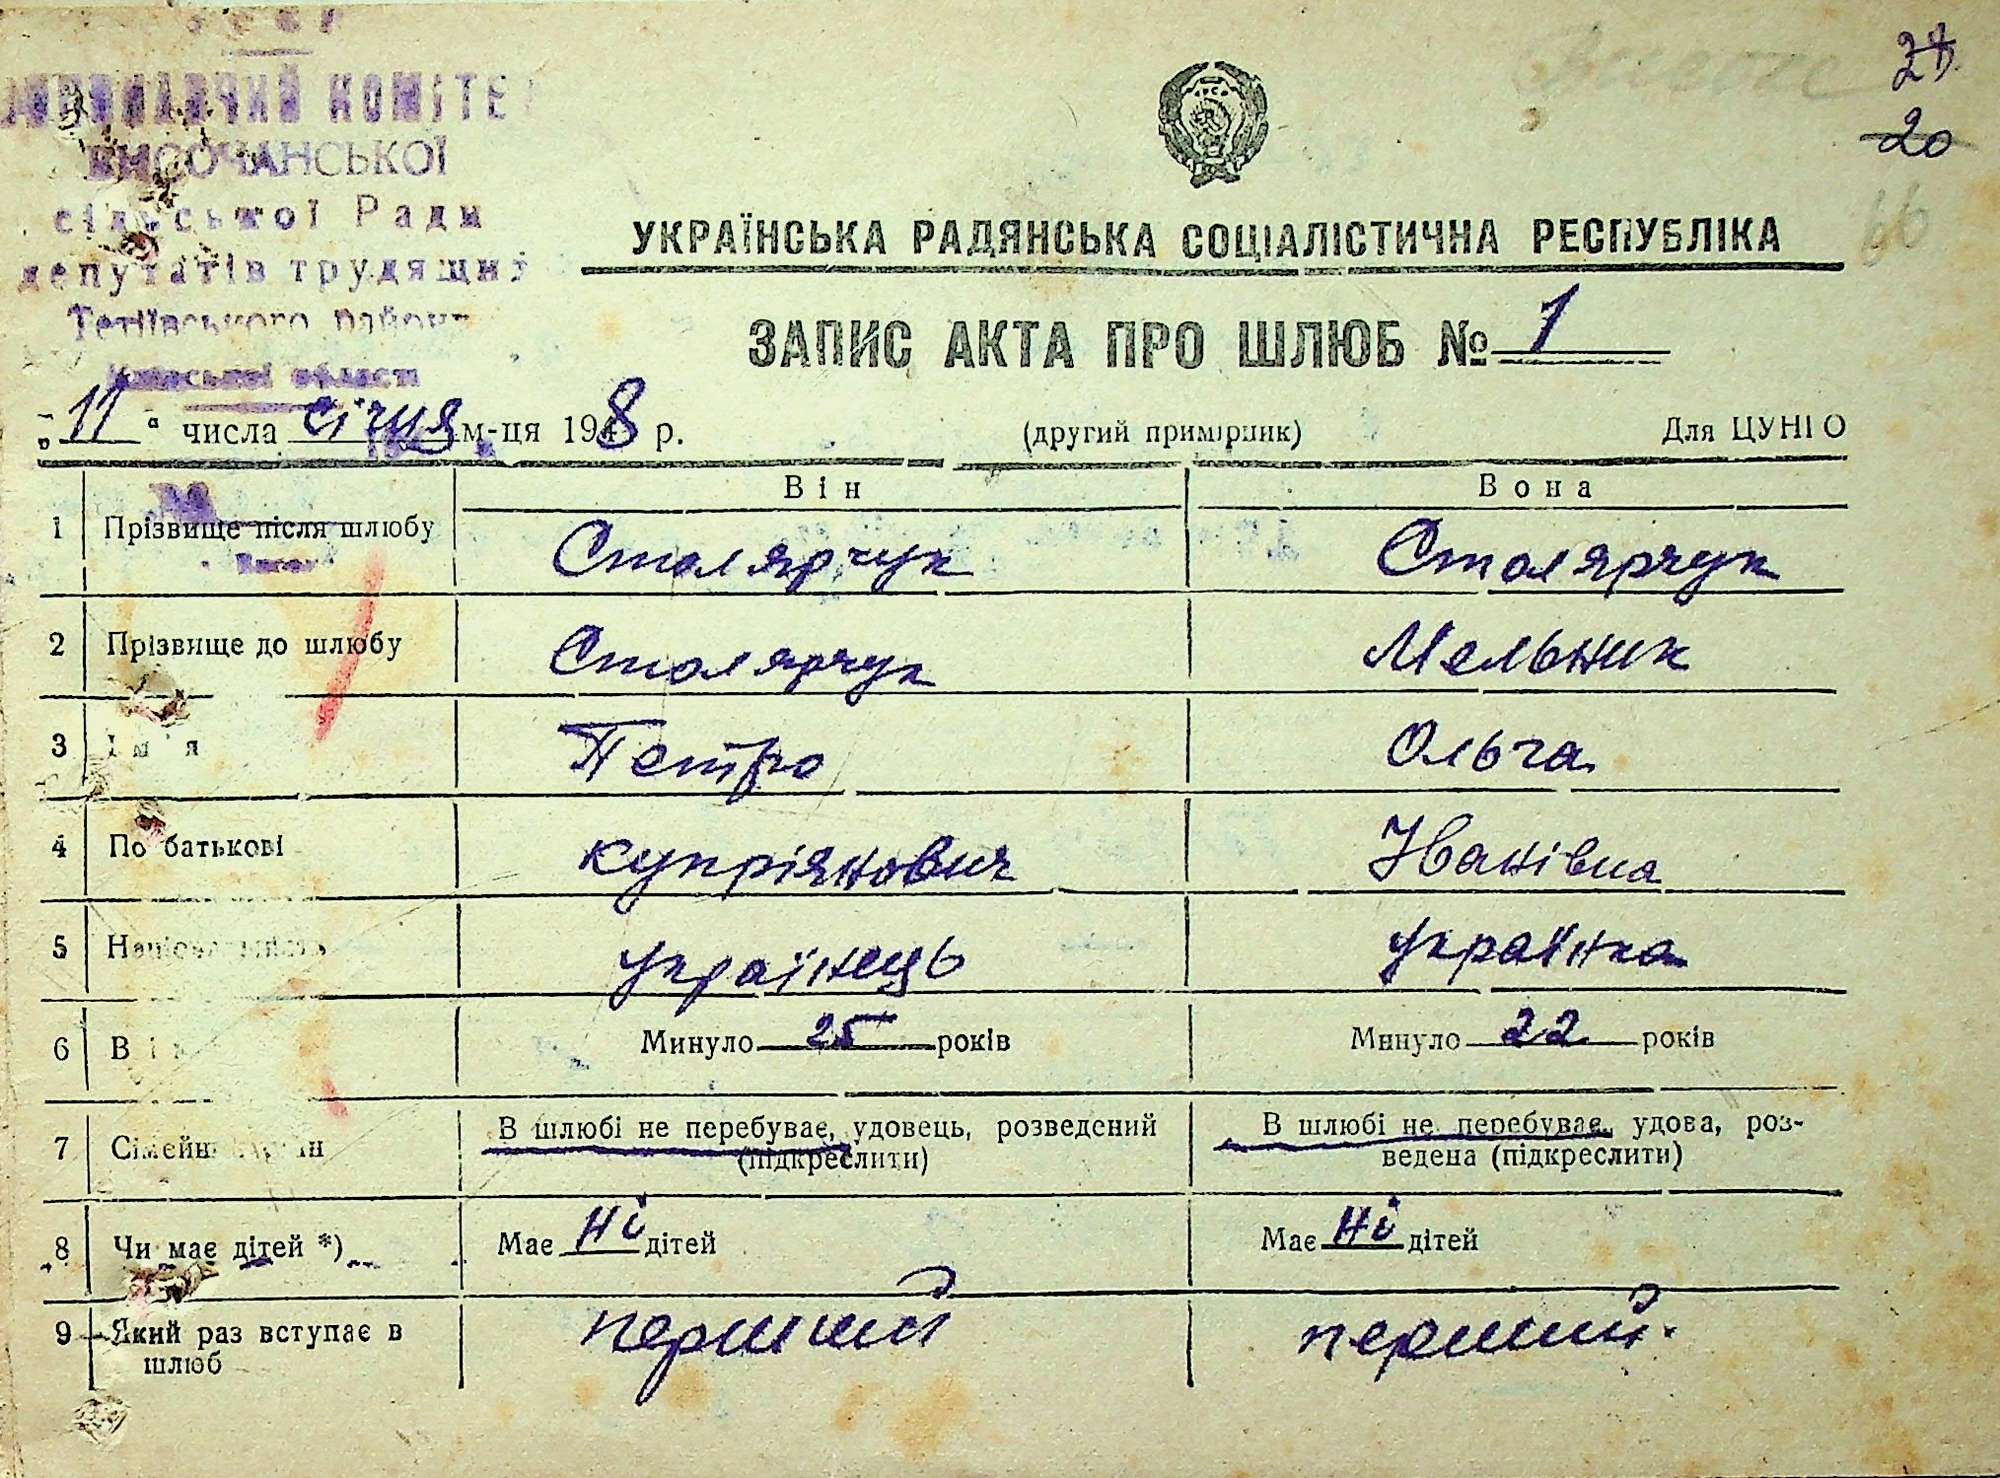 УРСР
ВИКОНАВЧИЙ КОМІТЕТ
ВИСОЧАНСЬКОЇ
сільської Ради
депутатів трудящих
Тетіївського району
Київської області
27
20
66
УКРАЇНСЬКА РАДЯНСЬКА СОЦІАЛІСТИЧНА РЕСПУБЛІКА
ЗАПИС АКТА ПРО ШЛЮБ № 1
„11“ числа січня м-ця 1948 р. (другий примірник) Для ЦУНГО
Він Вона
1 Прізвище після шлюбу Столярчук Столярчук
2 Прізвище до шлюбу Столярчук Мельник
3 Ім'я Петро Ольга
4 По батькові Купріянович Іванівна
5 Національність українець українка
6 Вік Минуло 25 років Минуло 22 років
7 Сімейний стан В шлюбі не перебуває, удовець, розведений (підкреслити) В шлюбі не перебуває, удова, роз-
ведена (підкреслити)
8 Чи має дітей *) Має Ні дітей Має Ні дітей
9 Який раз вступає в шлюб перший перший.